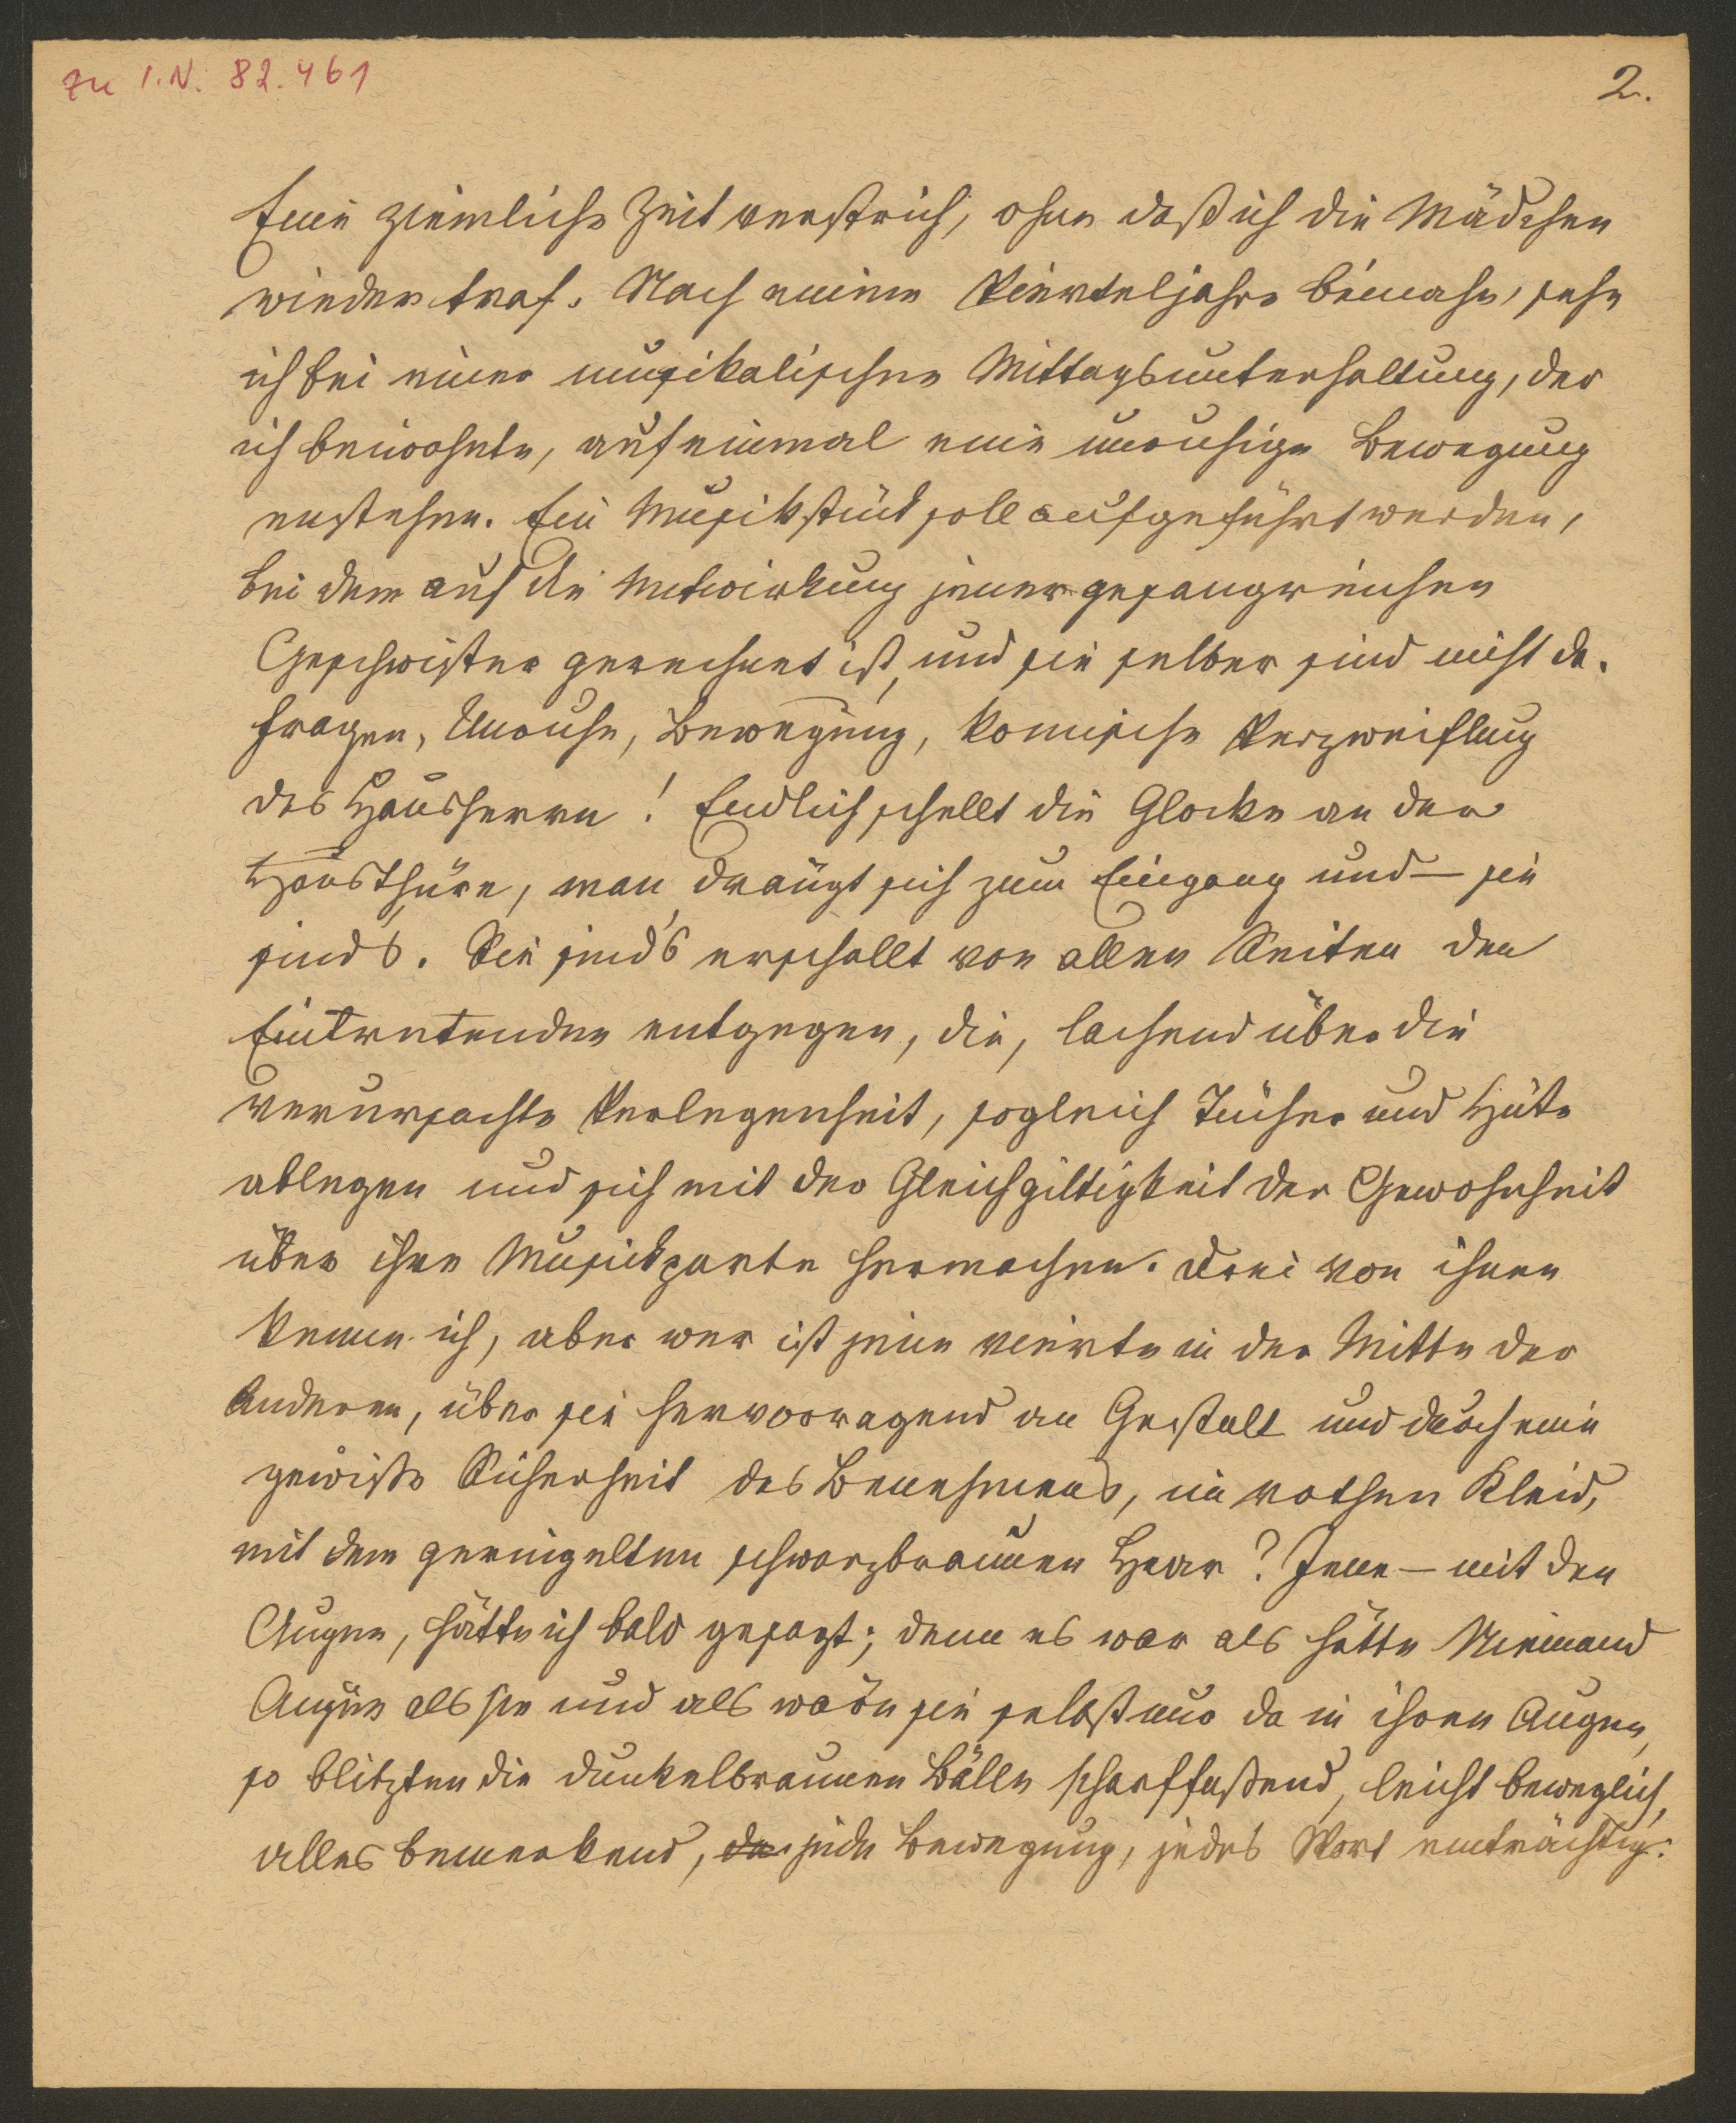 zu I.N. 82.461
2.
Eine ziemliche Zeit verstrich, ohne daß ich die Mädchen
wieder traf. Nach einem Vierteljahre beinahe, sehe
ich bei einer musikalischen Mittagsunterhaltung, der
ich beiwohnte, auf einmal eine unruhige Bewegung
enstehen. Ein Musikstück soll aufgeführt werden,
bei dem auf die Mitwirkung jener gesangreichen
Geschwister gerechnet ist, und sie selber sind nicht da.
Fragen, Unruhe, Bewegung, komische Verzweiflung
des Hausherrn! Endlich schellt die Glocke an der
Hausthüre, man drängt sich zum Eingang und — sie
sind's. Sie sind's erschallt von allen Seiten den
Eintretenden entgegen, die, lachend über die
verursachte Verlegenheit, sogleich Tücher und Hüte
ablegen und sich mit der Gleichgiltigkeit der Gewohnheit
über ihre Musickparte hermachen. Drei von ihnen
kenne ich, aber wer ist jene vierte in der Mitte der
Anderen, über sie hervorragend an Gestalt und durch eine
gewiße Sicherheit des Benehmens, im rothen Kleid,
mit dem geringelten schwarzbraunen Haar? Jene — mit den
Augen, hätte ich bald gesagt; denn es war als hätte Niemand
Augen als sie und als wäre sie selbst nur da in ihren Augen,
so blitzten die dunkelbraunen Bälle scharffaßend, leicht beweglich,
alles bemerkend, da jede Bewegung, jedes Wort einträchtig: